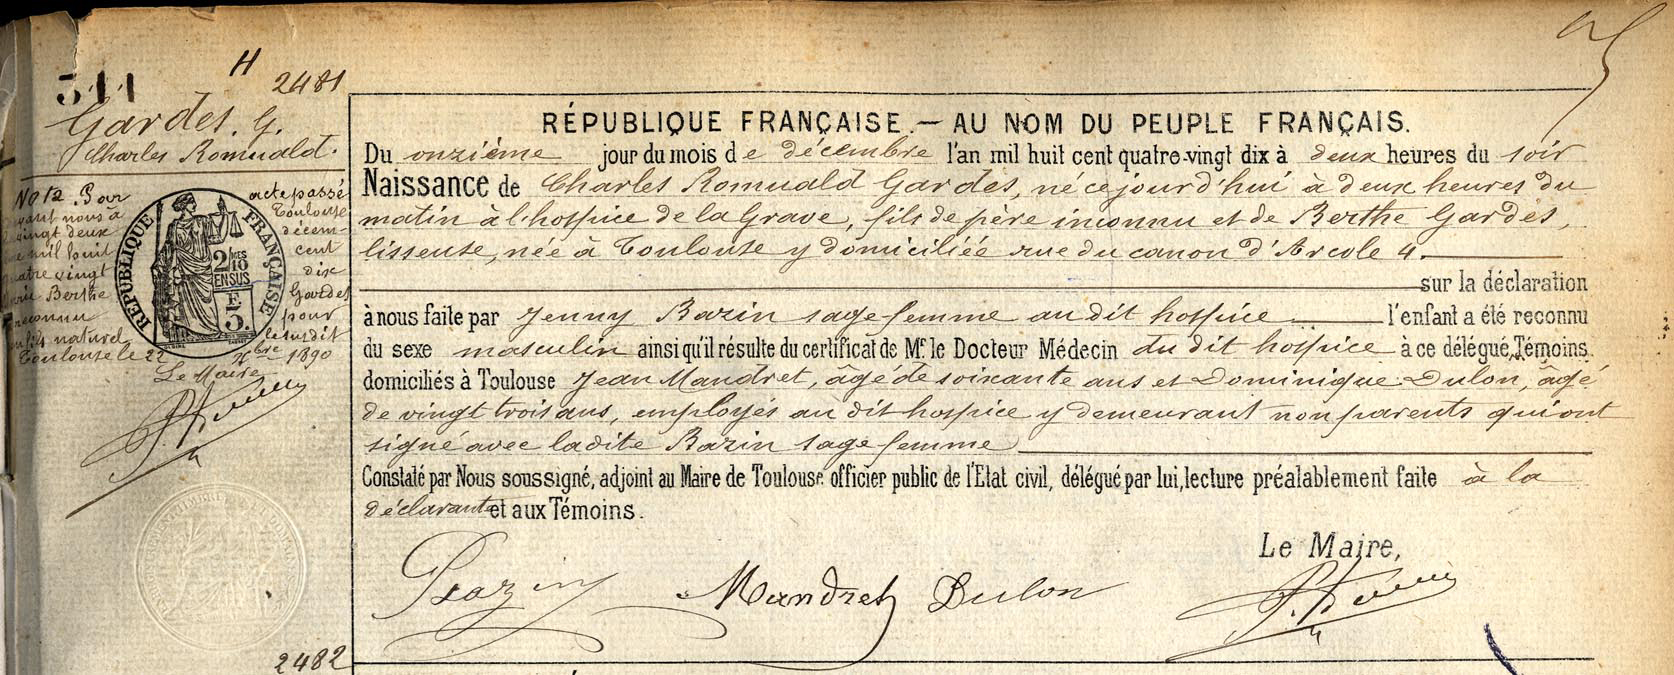 511
H
2481
Gardes. G.
Charles Romuald.
No 12. Par acte passé
devant nous à Toulouse
vingt deux décem-
mil huit cent
quatre vingt dix
Berthe Gardes
reconnu pour
fils naturel le susdit
Toulouse le 22 Xbre 1890
Le Maire
RÉPUBLIQUE FRANÇAISE
2/10 EN SUS
F.
5.
RÉPUBLIQUE FRANÇAISE.— AU NOM DU PEUPLE FRANÇAIS.
Du onzième jour du mois de décembre l'an mil huit cent quatre-vingt dix à deux heures du soir
Naissance de Charles Romuald Gardes, né ce jourd'hui à deux heures du
matin à l'hospice de la Grave, fils de père inconnu et de Berthe Gardes,
lisseuse, née à Toulouse y domiciliée rue du canon d'Arcole 4.
sur la déclaration
à nous faite par Jenny Bazin sage femme au dit hospice l'enfant a été reconnu
du sexe masculin ainsi qu'il résulte du certificat de Mr le Docteur Médecin du dit hospice à ce délégué, Témoins
domiciliés à Toulouse Jean Mandret, âgé de soixante ans et Dominique Dulon, âgé
de vingt trois ans, employés au dit hospice y demeurant non parents qui ont
signé avec ladite Bazin sage femme
Constaté par Nous soussigné, adjoint au Maire de Toulouse officier public de l'Etat civil, délégué par lui, lecture préalablement faite à la
déclarante et aux Témoins.
Le Maire,
Bazin Mandret Dulon
2482